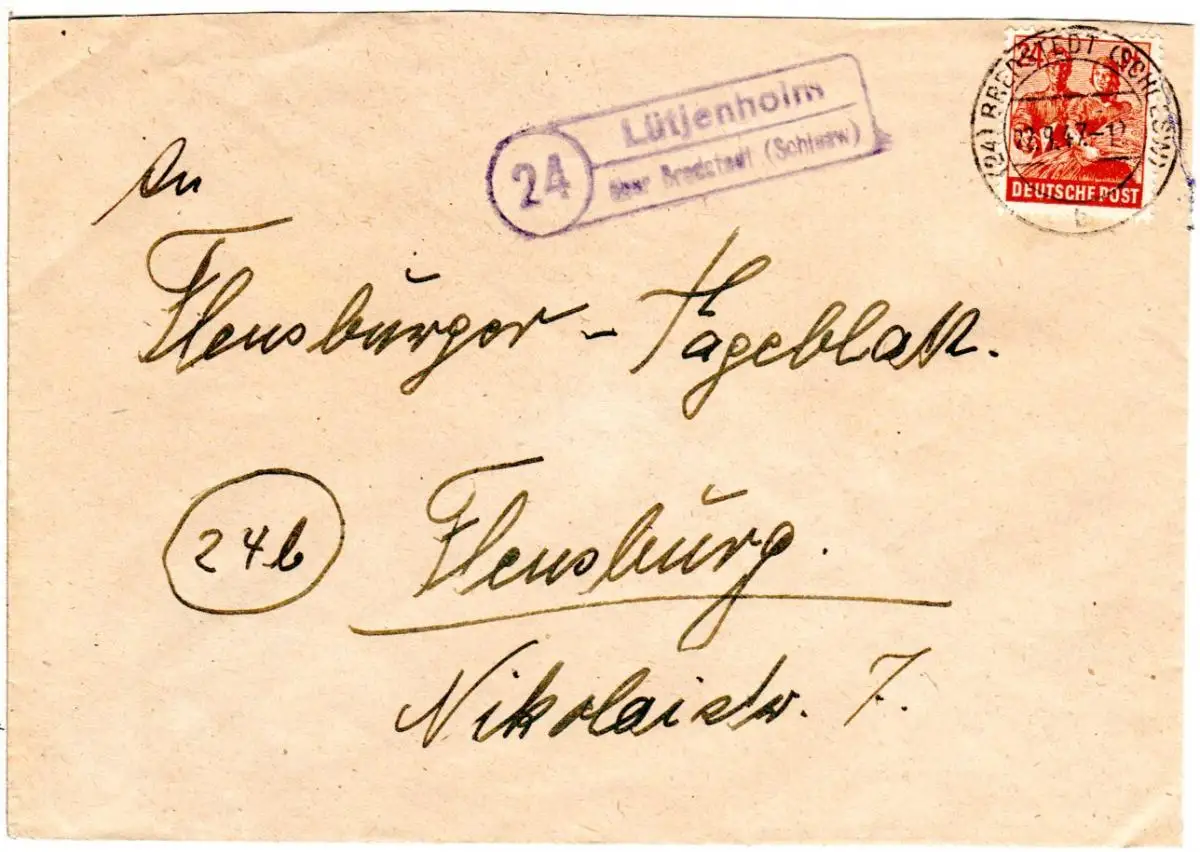 24
DEUTSCHE POST
(24) BREDSTEDT (SCHLESW)
9.47.-12
b
24
Lütjenholm
über Bredstedt (Schlesw)
An
Flensburger - Tageblatt.
24b
Flensburg.
Nikolaistr. 7.